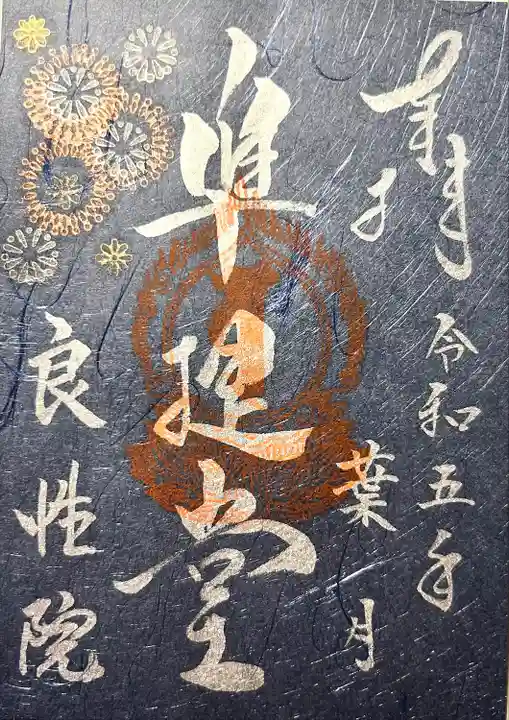 奉拝
令和五年
葉月
准提堂
良性院